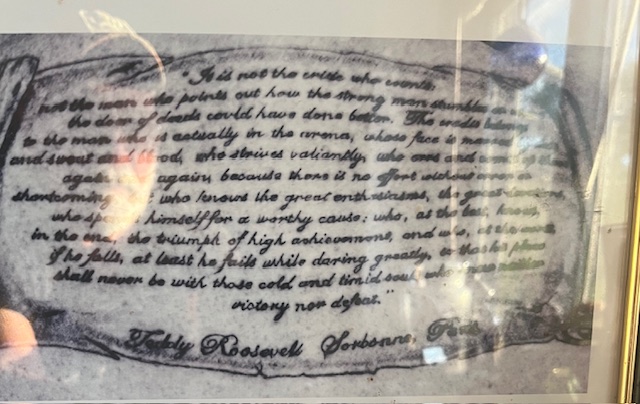 "It is not the critic who counts,
not the man who points out how the strong man stumbles or
the doer of deeds could have done better. The credit belongs
to the man who is actually in the arena, whose face is marred
and sweat and blood, who strives valiantly, who errs and comes up short
again again, because there is no effort without error or
shortcoming who knows the great enthusiasms, the great devotions,
who spends himself for a worthy cause; who, at the best, knows,
in the end, the triumph of high achievement, and who, at the worst,
if he fails, at least he fails while daring greatly, so that his place
shall never be with those cold and timid souls who know neither
victory nor defeat."
Teddy Roosevelt Sorbonne, Paris